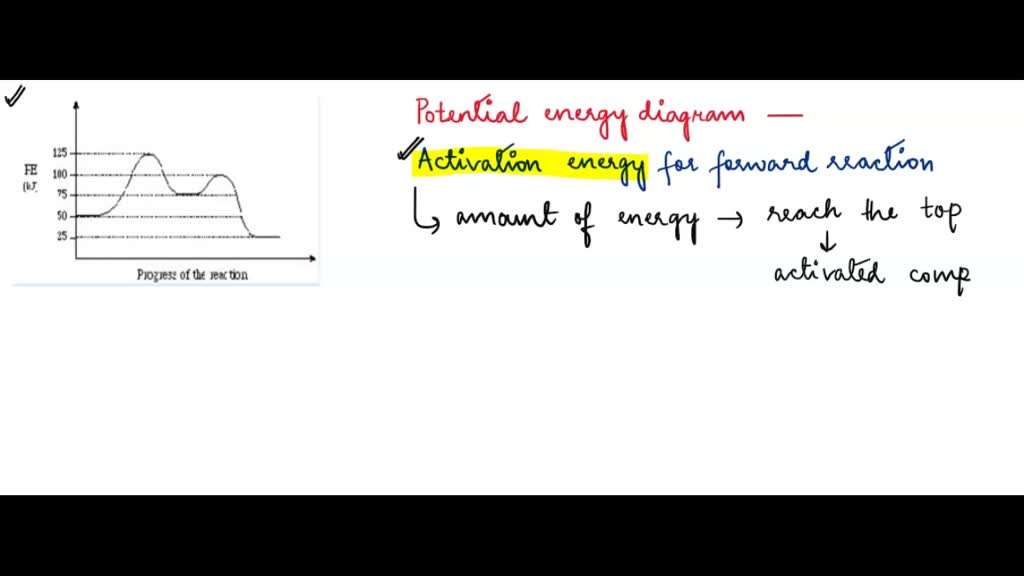 Potential energy diagram —
Activation energy for forward reaction
↳ amount of energy → reach the top
↓
activated comp
125
PE
100
(kJ)
75
50
25
Progress of the reaction